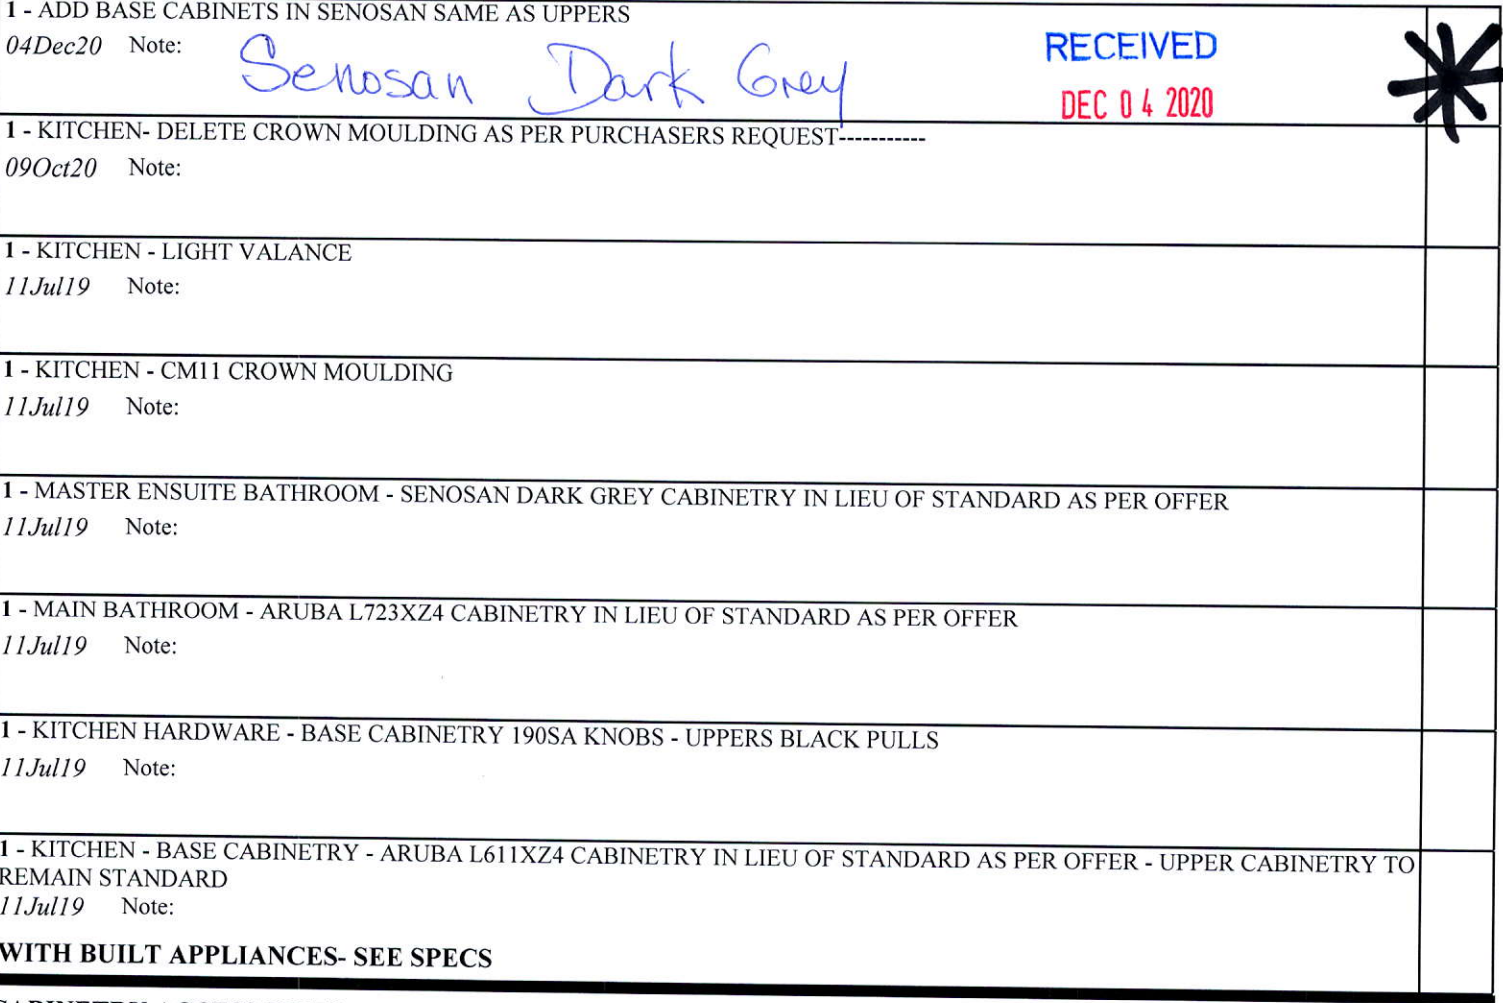 1 - ADD BASE CABINETS IN SENOSAN SAME AS UPPERS
04Dec20 Note: Senosan Dark Grey
RECEIVED
DEC 04 2020
1 - KITCHEN- DELETE CROWN MOULDING AS PER PURCHASERS REQUEST-----------
09Oct20 Note:
1 - KITCHEN - LIGHT VALANCE
11Jul19 Note:
1 - KITCHEN - CM11 CROWN MOULDING
11Jul19 Note:
1 - MASTER ENSUITE BATHROOM - SENOSAN DARK GREY CABINETRY IN LIEU OF STANDARD AS PER OFFER
11Jul19 Note:
1 - MAIN BATHROOM - ARUBA L723XZ4 CABINETRY IN LIEU OF STANDARD AS PER OFFER
11Jul19 Note:
1 - KITCHEN HARDWARE - BASE CABINETRY 190SA KNOBS - UPPERS BLACK PULLS
11Jul19 Note:
1 - KITCHEN - BASE CABINETRY - ARUBA L611XZ4 CABINETRY IN LIEU OF STANDARD AS PER OFFER - UPPER CABINETRY TO
REMAIN STANDARD
11Jul19 Note:
WITH BUILT APPLIANCES- SEE SPECS